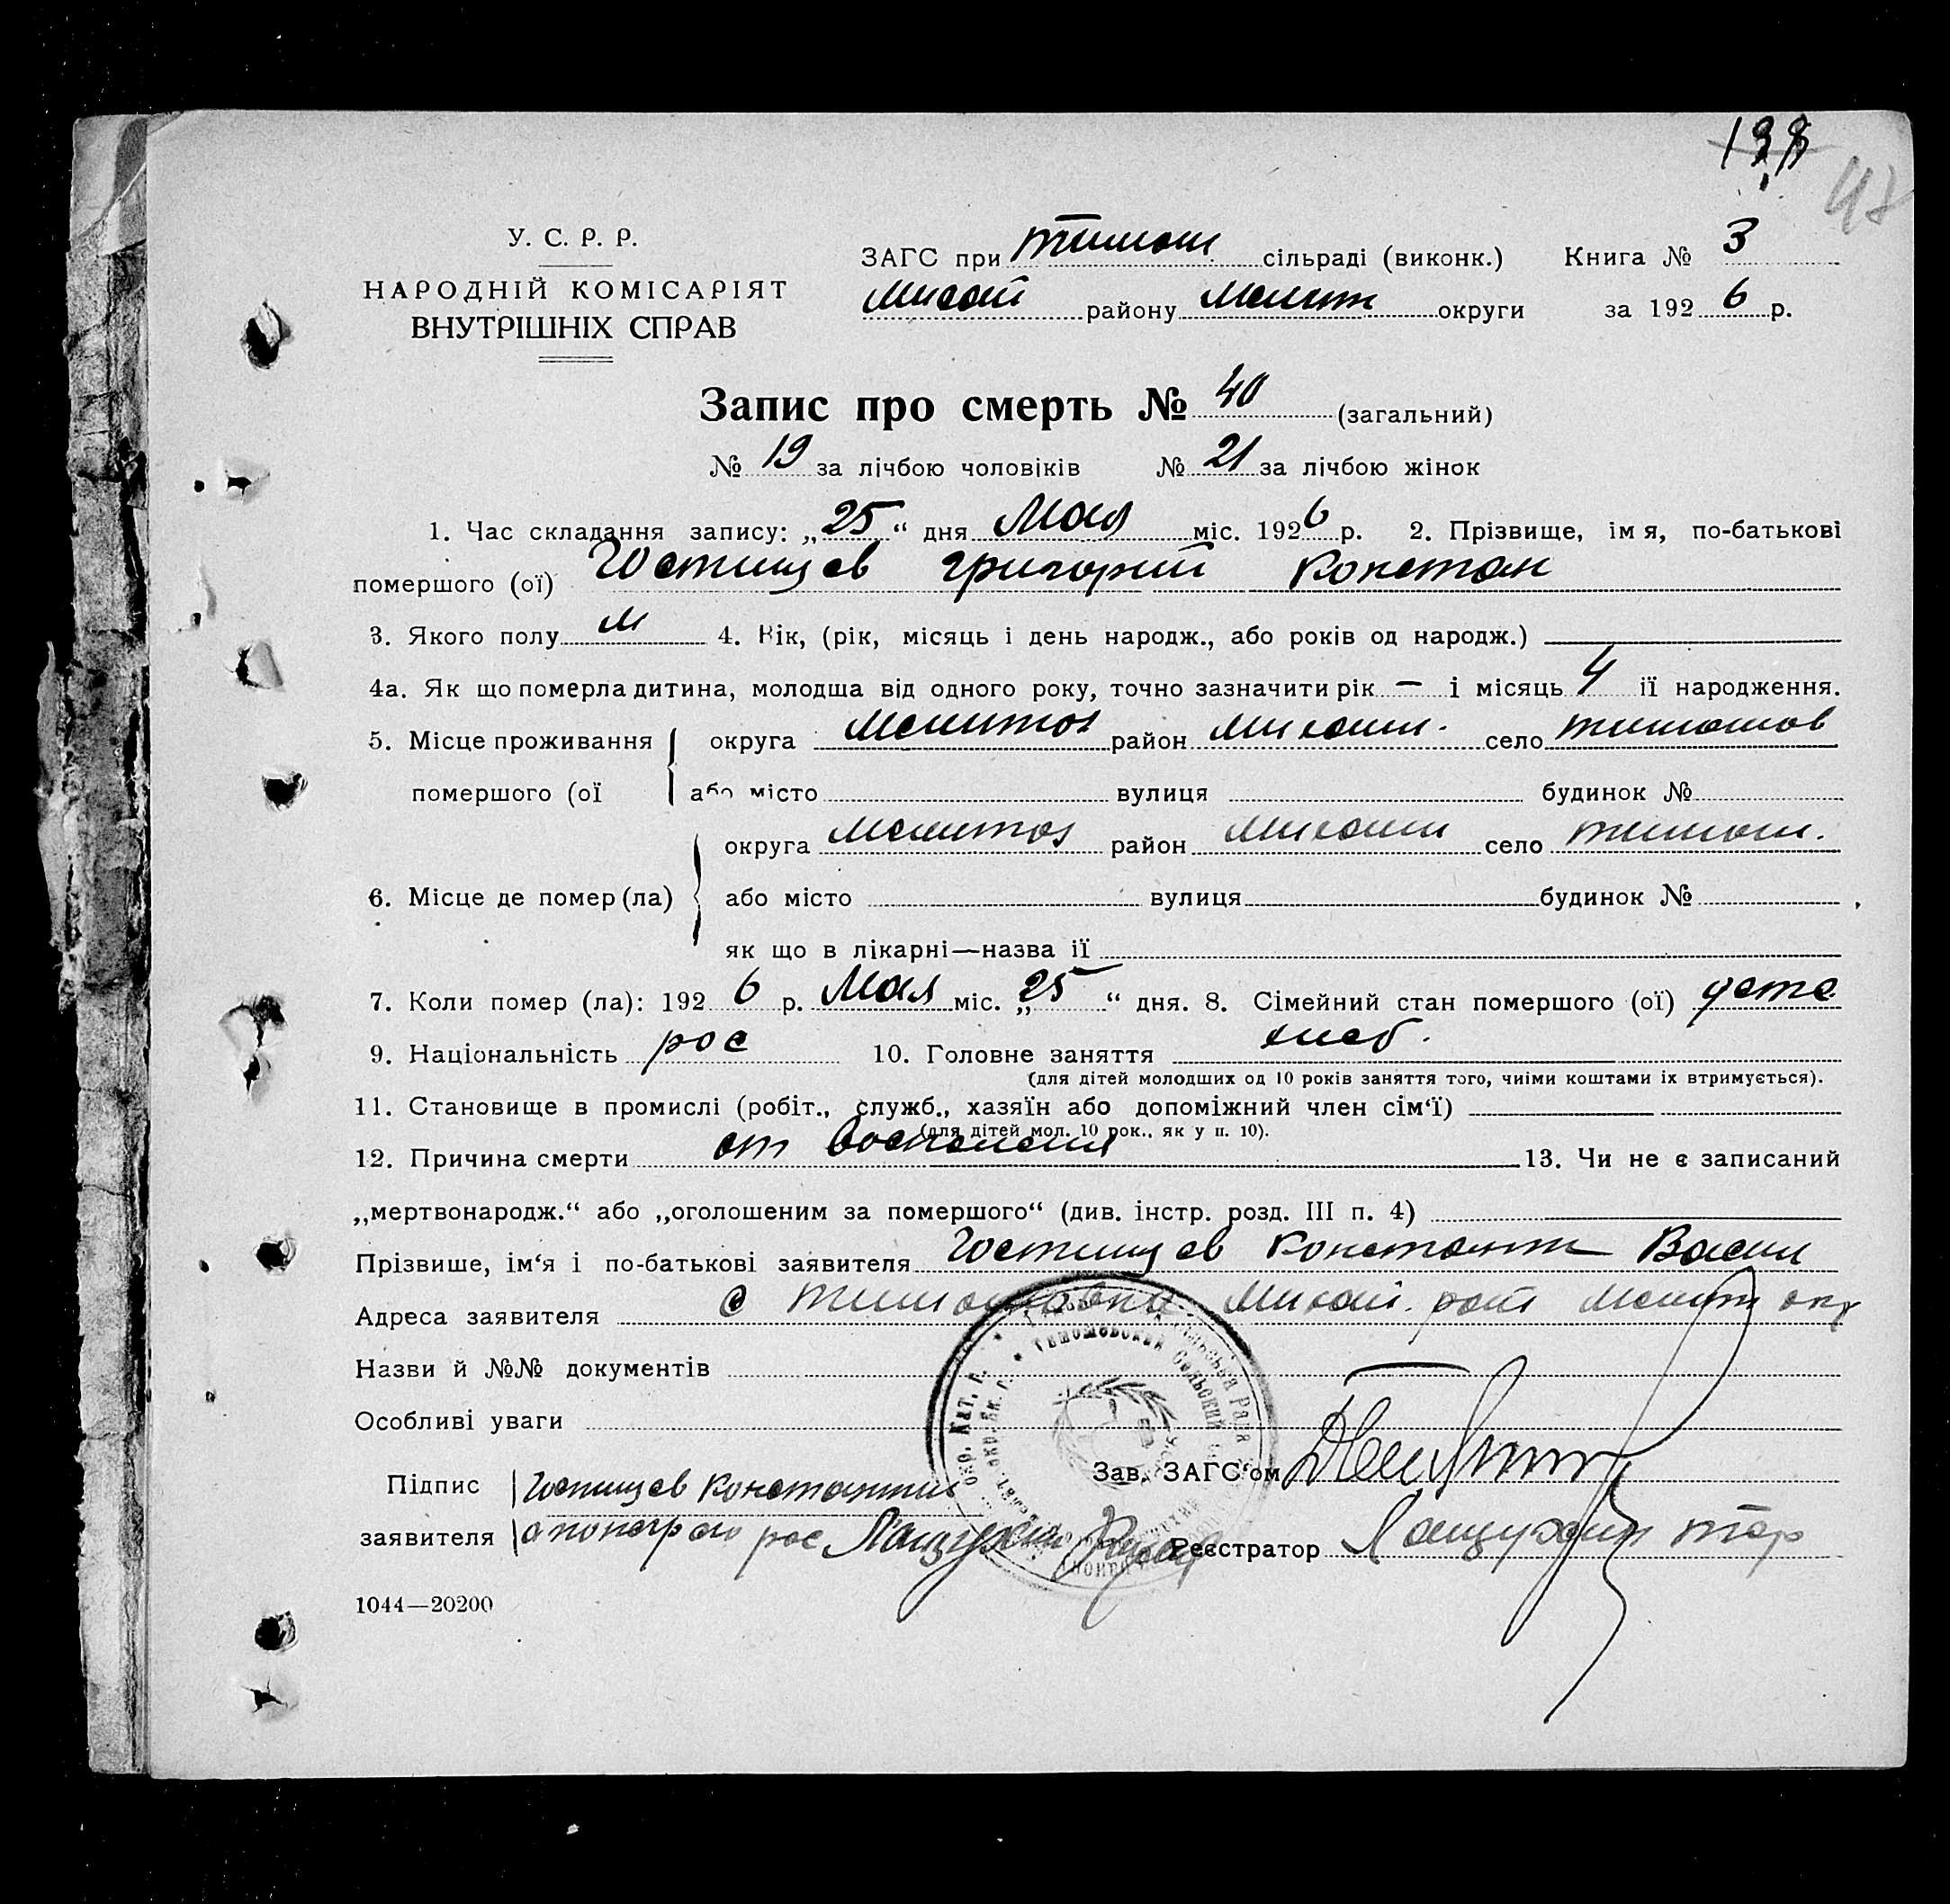 138
47
У. С. Р. Р.
НАРОДНІЙ КОМІСАРІЯТ
ВНУТРІШНІХ СПРАВ
ЗАГС при Тимош сільраді (виконк.) Книга № 3
Михай району Мелит округи за 1926 р.
Запис про смерть № 40 (загальний)
№ 19 за лічбою чоловіків № 21 за лічбою жінок
1. Час складання запису: „25“ дня Мая міс. 1926 р. 2. Прізвище, імя, по-батькові
помершого (ої) Гостищев Григорий Констан
3. Якого полу м 4. Вік, (рік, місяць і день народж., або років од народж.)
4а. Як що померла дитина, молодща від одного року, точно зазначити рік — і місяць 4 її народження.
5. Місце проживання округа Мелитоп район Михайл. село Тимошов
помершого (ої або місто вулиця будинок №
округа Мелитоп район Михайл село Тимош.
6. Місце де помер (ла) або місто вулиця будинок №
як що в лікарні—назва її
7. Коли помер (ла): 1926 р. Мая міс. „25“ дня. 8. Сімейний стан помершого (ої) дете
9. Національність рос 10. Головне заняття хлеб.
(для дітей молодших од 10 років заняття того, чиїми коштами їх втримується).
11. Становище в промислі (робіт., служб., хазяїн або допоміжний член сім‘ї)
(для дітей мол. 10 рок., як у п. 10).
12. Причина смерти от воспаления 13. Чи не є записаний
„мертвонародж.“ або „оголошеним за помершого“ (див. інстр. розд. III п. 4)
Прізвише, ім‘я і по-батькові заявителя Гостищев Константин Васил
Адреса заявителя с Тимошовка Михай. рай Мелит окр
Назви й №№ документів
Особливі уваги
Зав. ЗАГС‘ом
Підпис Гостищев Константин
заявителя Лащухин Реєстратор Лащухин
1044—20200